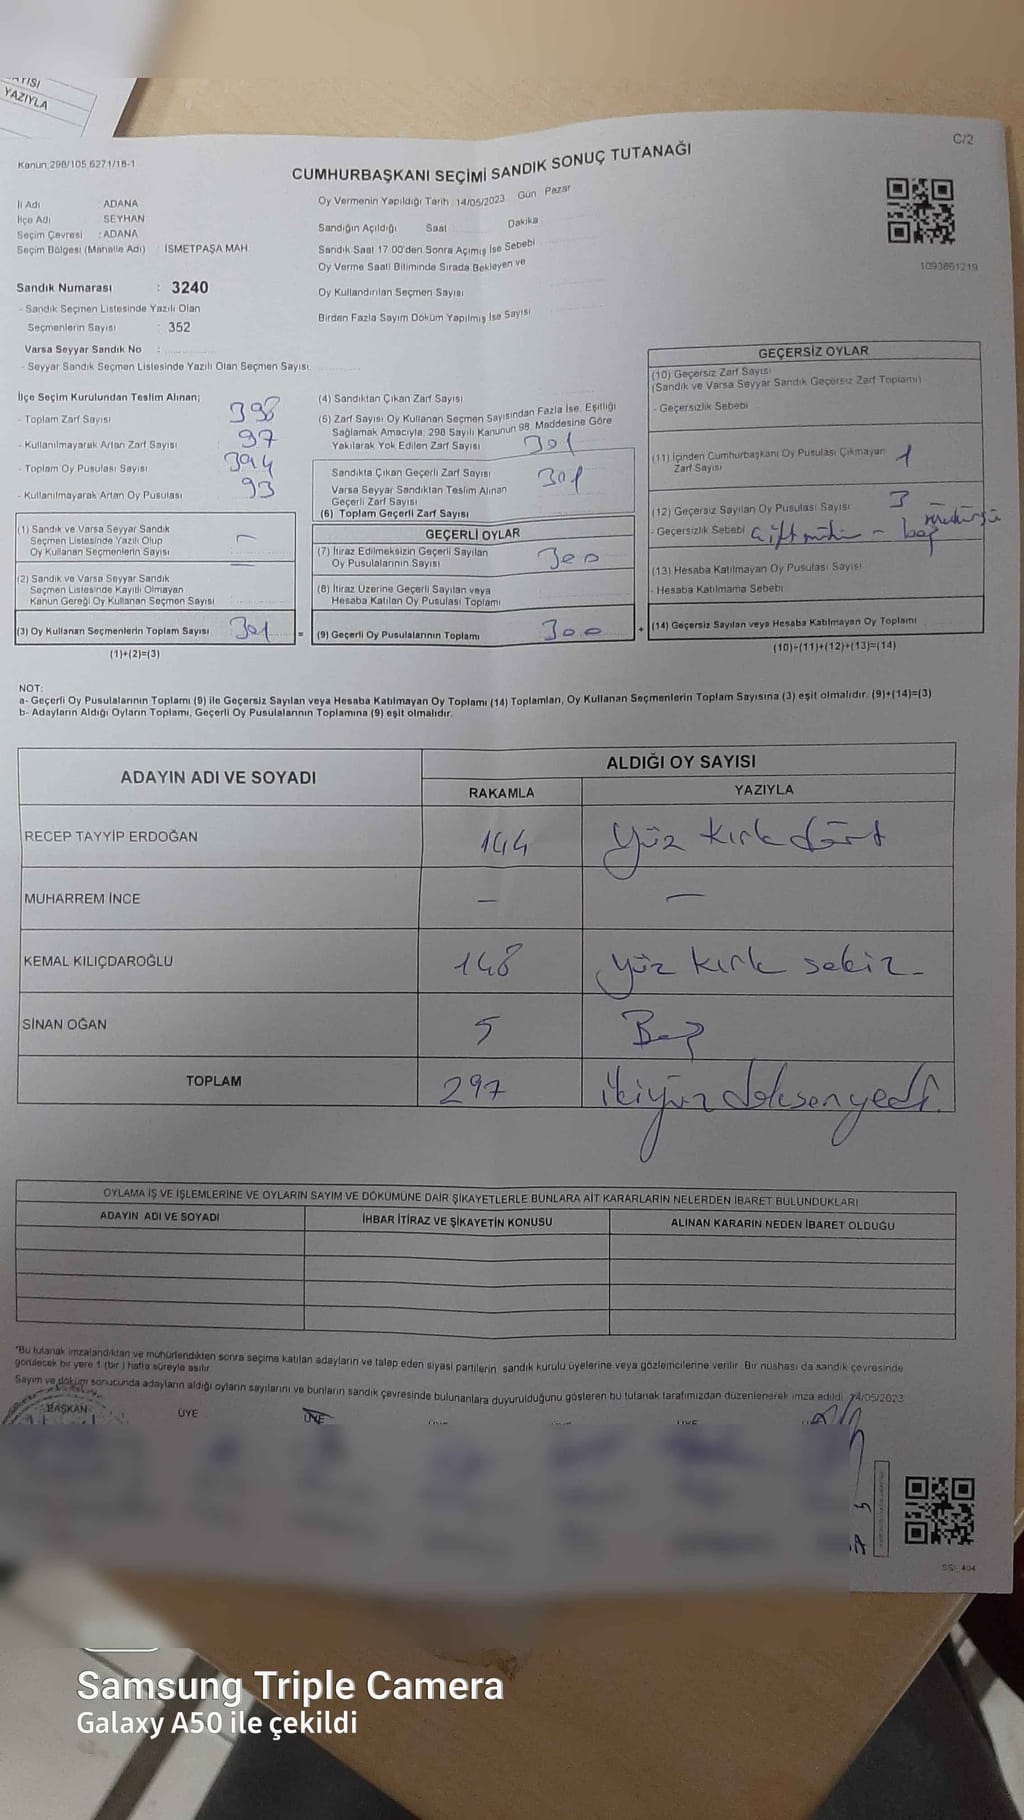 YISI
YAZIYLA
C/2
Kanun 298/105,6271/18-1
CUMHURBAŞKANI SEÇİMİ SANDIK SONUÇ TUTANAĞI
İl Adı ADANA
İlçe Adı SEYHAN
Seçim Çevresi : ADANA
Seçim Bölgesi (Mahalle Adı) : İSMETPAŞA MAH.
Sandık Numarası : 3240
- Sandık Seçmen Listesinde Yazılı Olan
Seçmenlerin Sayısı : 352
Varsa Seyyar Sandık No :
- Seyyar Sandık Seçmen Listesinde Yazılı Olan Seçmen Sayısı:
Oy Vermenin Yapıldığı Tarih : 14/05/2023 Gün Pazar
Sandığın Açıldığı Saat Dakika
Sandık Saat 17.00'den Sonra Açımış İse Sebebi
Oy Verme Saati Bitiminde Sırada Bekleyen ve
Oy Kullandırılan Seçmen Sayısı
Birden Fazla Sayım Döküm Yapılmış İse Sayısı
1093861219
İlçe Seçim Kurulundan Teslim Alınan;
- Toplam Zarf Sayısı 398
- Kullanılmayarak Artan Zarf Sayısı 97
- Toplam Oy Pusulası Sayısı 394
- Kullanılmayarak Artan Oy Pusulası 93
(1) Sandık ve Varsa Seyyar Sandık
Seçmen Listesinde Yazılı Olup
Oy Kullanan Seçmenlerin Sayısı –
(2) Sandık ve Varsa Seyyar Sandık
Seçmen Listesinde Kayıtlı Olmayan
Kanun Gereği Oy Kullanan Seçmen Sayısı
(3) Oy Kullanan Seçmenlerin Toplam Sayısı 301 =
(1)+(2)=(3)
(4) Sandıktan Çıkan Zarf Sayısı
(5) Zarf Sayısı Oy Kullanan Seçmen Sayısından Fazla İse, Eşitliği
Sağlamak Amacıyla; 298 Sayılı Kanunun 98. Maddesine Göre
Yakılarak Yok Edilen Zarf Sayısı 301
Sandıkta Çıkan Geçerli Zarf Sayısı 301
Varsa Seyyar Sandıktan Teslim Alınan
Geçerli Zarf Sayısı
(6) Toplam Geçerli Zarf Sayısı
GEÇERLİ OYLAR
(7) İtiraz Edilmeksizin Geçerli Sayılan
Oy Pusulalarının Sayısı 300
(8) İtiraz Üzerine Geçerli Sayılan veya
Hesaba Katılan Oy Pusulası Toplamı
(9) Geçerli Oy Pusulalarının Toplamı 300 +
GEÇERSİZ OYLAR
(10) Geçersiz Zarf Sayısı
(Sandık ve Varsa Seyyar Sandık Geçersiz Zarf Toplamı)
- Geçersizlik Sebebi
(11) İçinden Cumhurbaşkanı Oy Pusulası Çıkmayan 1
Zarf Sayısı
(12) Geçersiz Sayılan Oy Pusulası Sayısı 3
- Geçersizlik Sebebi çift mühür - boş
(13) Hesaba Katılmayan Oy Pusulası Sayısı
- Hesaba Katılmama Sebebi
(14) Geçersiz Sayılan veya Hesaba Katılmayan Oy Toplamı
(10)+(11)+(12)+(13)=(14)
NOT:
a- Geçerli Oy Pusulalarının Toplamı (9) ile Geçersiz Sayılan veya Hesaba Katılmayan Oy Toplamı (14) Toplamları, Oy Kullanan Seçmenlerin Toplam Sayısına (3) eşit olmalıdır. (9)+(14)=(3)
b- Adayların Aldığı Oyların Toplamı, Geçerli Oy Pusulalarının Toplamına (9) eşit olmalıdır.
ADAYIN ADI VE SOYADI
ALDIĞI OY SAYISI
RAKAMLA YAZIYLA
RECEP TAYYİP ERDOĞAN 144 Yüz kırk dört
MUHARREM İNCE – –
KEMAL KILIÇDAROĞLU 148 yüz kırk sekiz-
SİNAN OĞAN 5 Beş
TOPLAM 297 ikiyüz doksen yedi.
OYLAMA İŞ VE İŞLEMLERİNE VE OYLARIN SAYIM VE DÖKÜMÜNE DAİR ŞİKAYETLERLE BUNLARA AİT KARARLARIN NELERDEN İBARET BULUNDUKLARI
ADAYIN ADI VE SOYADI İHBAR İTİRAZ VE ŞİKAYETİN KONUSU ALINAN KARARIN NEDEN İBARET OLDUĞU
*Bu tutanak imzalandıktan ve mühürlendikten sonra seçime katılan adayların ve talep eden siyasi partilerin sandık kurulu üyelerine veya gözlemcilerine verilir. Bir nüshası da sandık çevresinde
görülecek bir yere 1 (bir) hafta süreyle asılır.
Sayım ve döküm sonucunda adayların aldığı oyların sayılarını ve bunların sandık çevresinde bulunanlara duyurulduğunu gösteren bu tutanak tarafımızdan düzenlenerek imza edildi. 14/05/2023
BAŞKAN ÜYE ÜYE
SSI: 404
Samsung Triple Camera
Galaxy A50 ile çekildi